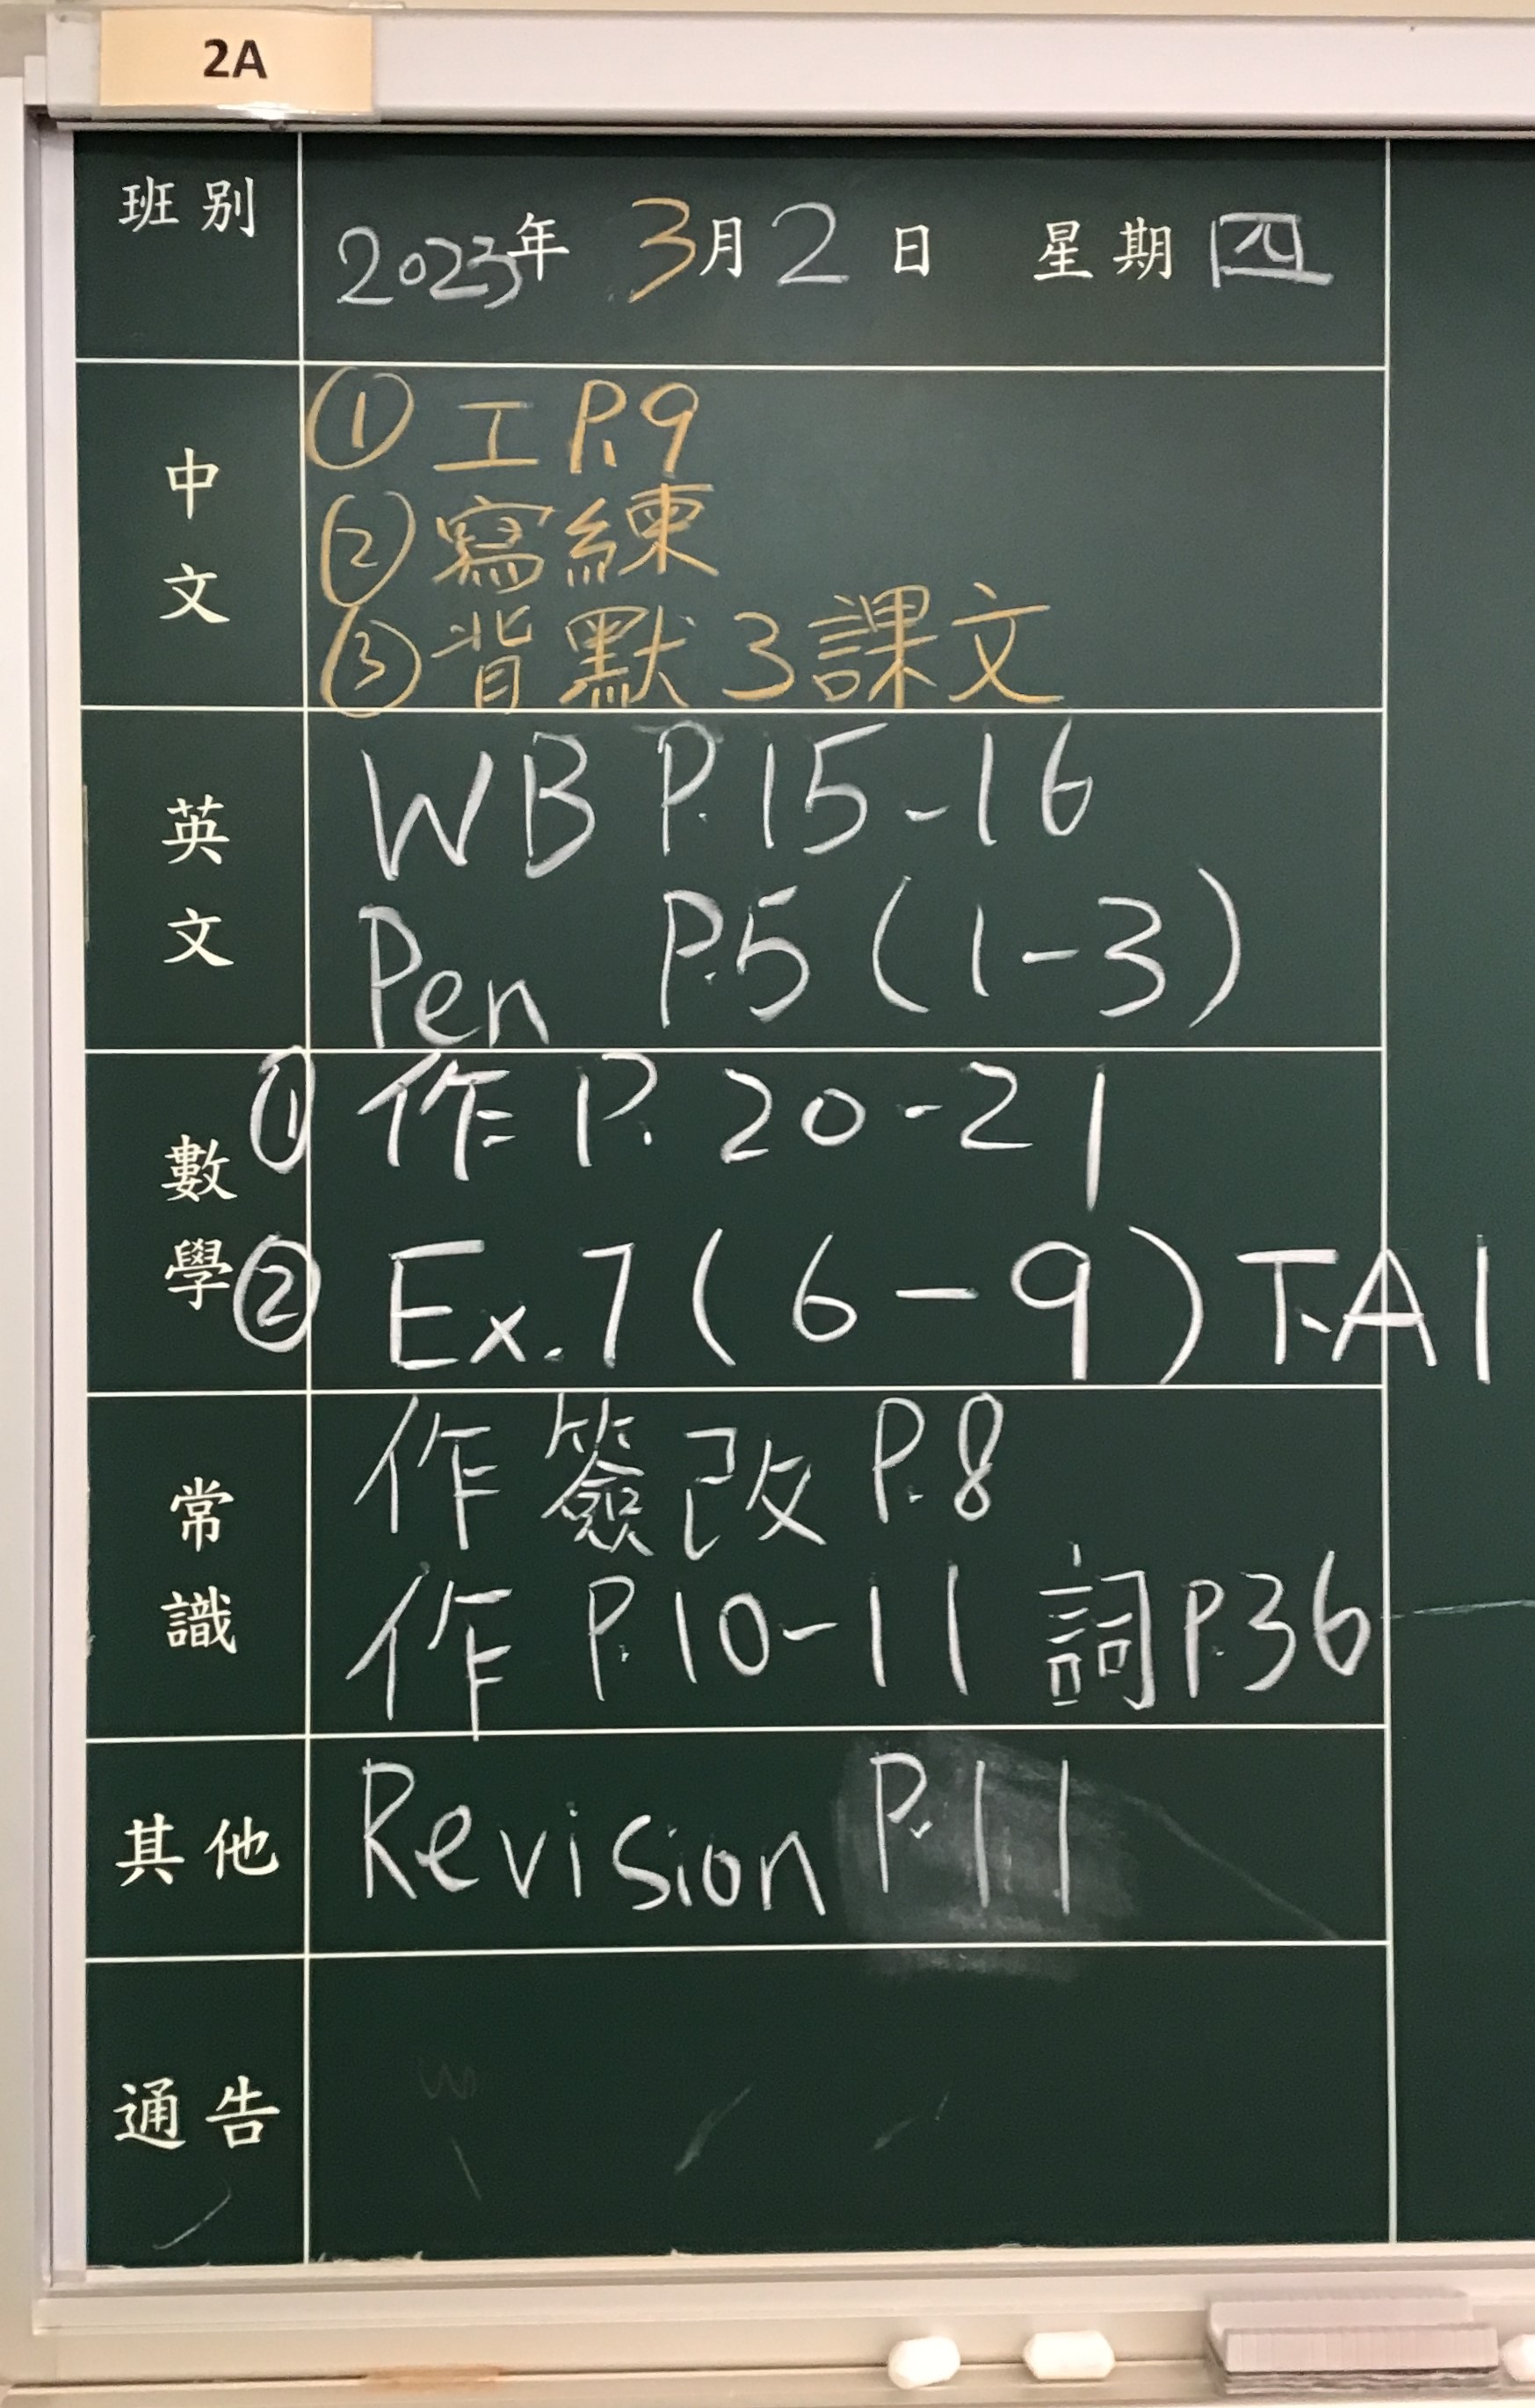 2A
班別
2023年 3月2日 星期四
中文
① 工 P.9
② 寫練
③ 背默3課文
英文
WB P.15-16
Pen P.5 (1-3)
數學
① 作 P. 20-21
② Ex.7 (6-9) T.A1
常識
作 簽改 P.8
作 P.10-11 詞 P.36
其他
Revision P.11
通告